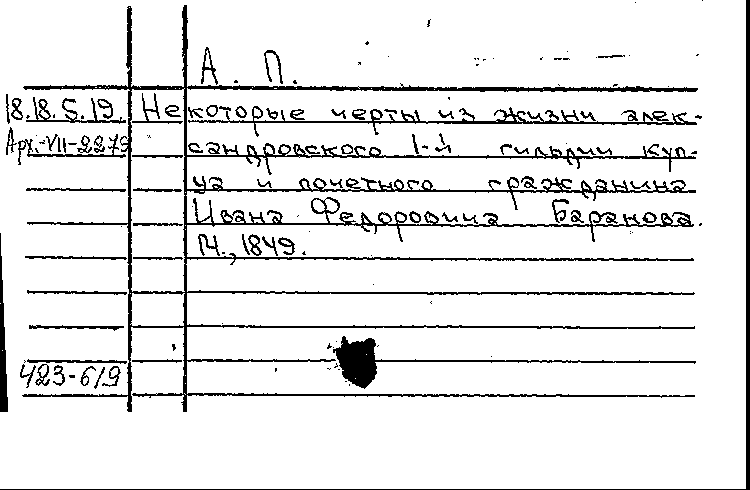 А. П.
18.18.5.19. Некоторые черты из жизни алек-
Арх.-VII-2279 сандровского 1-й гильдии куп-
ца и почетного гражданина
Ивана Федоровича Баранова.
М., 1849.
423-619